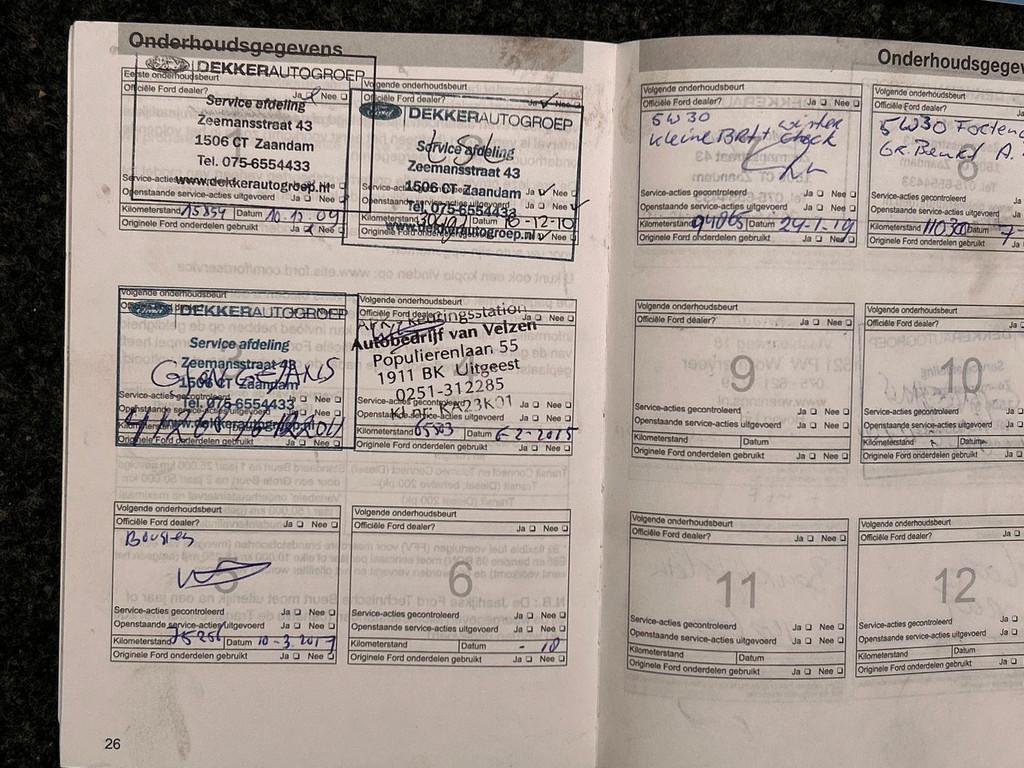 Onderhoudsgegevens
Eerste onderhoudsbeurt
Officiële Ford dealer? Ja Nee
DEKKERAUTOGROEP
Service afdeling
Zeemansstraat 43
1506 CT Zaandam
Tel. 075-6554433
www.dekkerautogroep.nl
Kilometerstand 15854 Datum 10-12-09
Originele Ford onderdelen gebruikt Ja Nee
Volgende onderhoudsbeurt
Officiële Ford dealer? Ja Nee
Ford DEKKERAUTOGROEP
Service afdeling
Zeemansstraat 43
1506 CT Zaandam
Tel. 075-6554433
www.dekkerautogroep.nl
Kilometerstand Datum 16-12-10
Volgende onderhoudsbeurt
Ford DEKKERAUTOGROEP
Service afdeling
Zeemansstraat 43
1506 CT Zaandam
Tel. 075-6554433
www.dekkerautogroep.nl
Originele Ford onderdelen gebruikt Ja Nee
Volgende onderhoudsbeurt
Officiële Ford dealer? Ja Nee
Autobedrijf van Velzen
Populierenlaan 55
1911 BK Uitgeest
0251-312285
Kl.nr. KA23K01
Kilometerstand 65503 Datum 6-2-2015
Originele Ford onderdelen gebruikt Ja Nee
Volgende onderhoudsbeurt
Officiële Ford dealer? Ja Nee
5
Service-acties gecontroleerd Ja Nee
Openstaande service-acties uitgevoerd Ja Nee
Kilometerstand 75256 Datum 10-3-2017
Originele Ford onderdelen gebruikt Ja Nee
Volgende onderhoudsbeurt
Officiële Ford dealer? Ja Nee
6
Service-acties gecontroleerd Ja Nee
Openstaande service-acties uitgevoerd Ja Nee
Kilometerstand Datum - 18
Originele Ford onderdelen gebruikt Ja Nee
26
Onderhoudsgegev
Volgende onderhoudsbeurt
Officiële Ford dealer? Ja Nee
5W30
kleine BRT + winter
check
Service-acties gecontroleerd Ja Nee
Openstaande service-acties uitgevoerd Ja Nee
Kilometerstand 94865 Datum 24-1-19
Originele Ford onderdelen gebruikt Ja Nee
Volgende onderhoudsbeurt
Officiële Ford dealer?
5W30
8
Service-acties gecontroleerd Ja
Openstaande service-acties uitgevoerd Ja
Kilometerstand 110300 Datum 7-
Originele Ford onderdelen gebruikt Ja
Volgende onderhoudsbeurt
Officiële Ford dealer? Ja Nee
9
Service-acties gecontroleerd Ja Nee
Openstaande service-acties uitgevoerd Ja Nee
Kilometerstand Datum
Originele Ford onderdelen gebruikt Ja Nee
Volgende onderhoudsbeurt
Officiële Ford dealer? Ja
10
Service-acties gecontroleerd Ja
Openstaande service-acties uitgevoerd Ja
Kilometerstand Datum
Originele Ford onderdelen gebruikt Ja
Volgende onderhoudsbeurt
Officiële Ford dealer? Ja Nee
11
Service-acties gecontroleerd Ja Nee
Openstaande service-acties uitgevoerd Ja Nee
Kilometerstand Datum
Originele Ford onderdelen gebruikt Ja Nee
Volgende onderhoudsbeurt
Officiële Ford dealer? Ja
12
Service-acties gecontroleerd Ja
Openstaande service-acties uitgevoerd Ja
Kilometerstand Datum
Originele Ford onderdelen gebruikt Ja